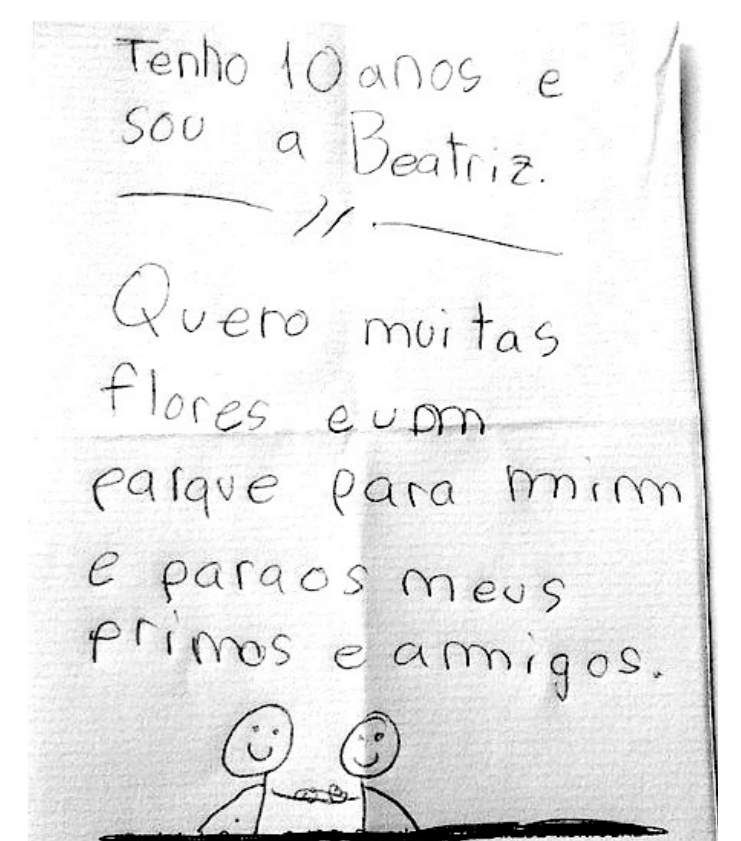 Tenho 10 anos e
sou a Beatriz.
Quero muitas
flores e um
parque para mim
e para os meus
primos e amigos.